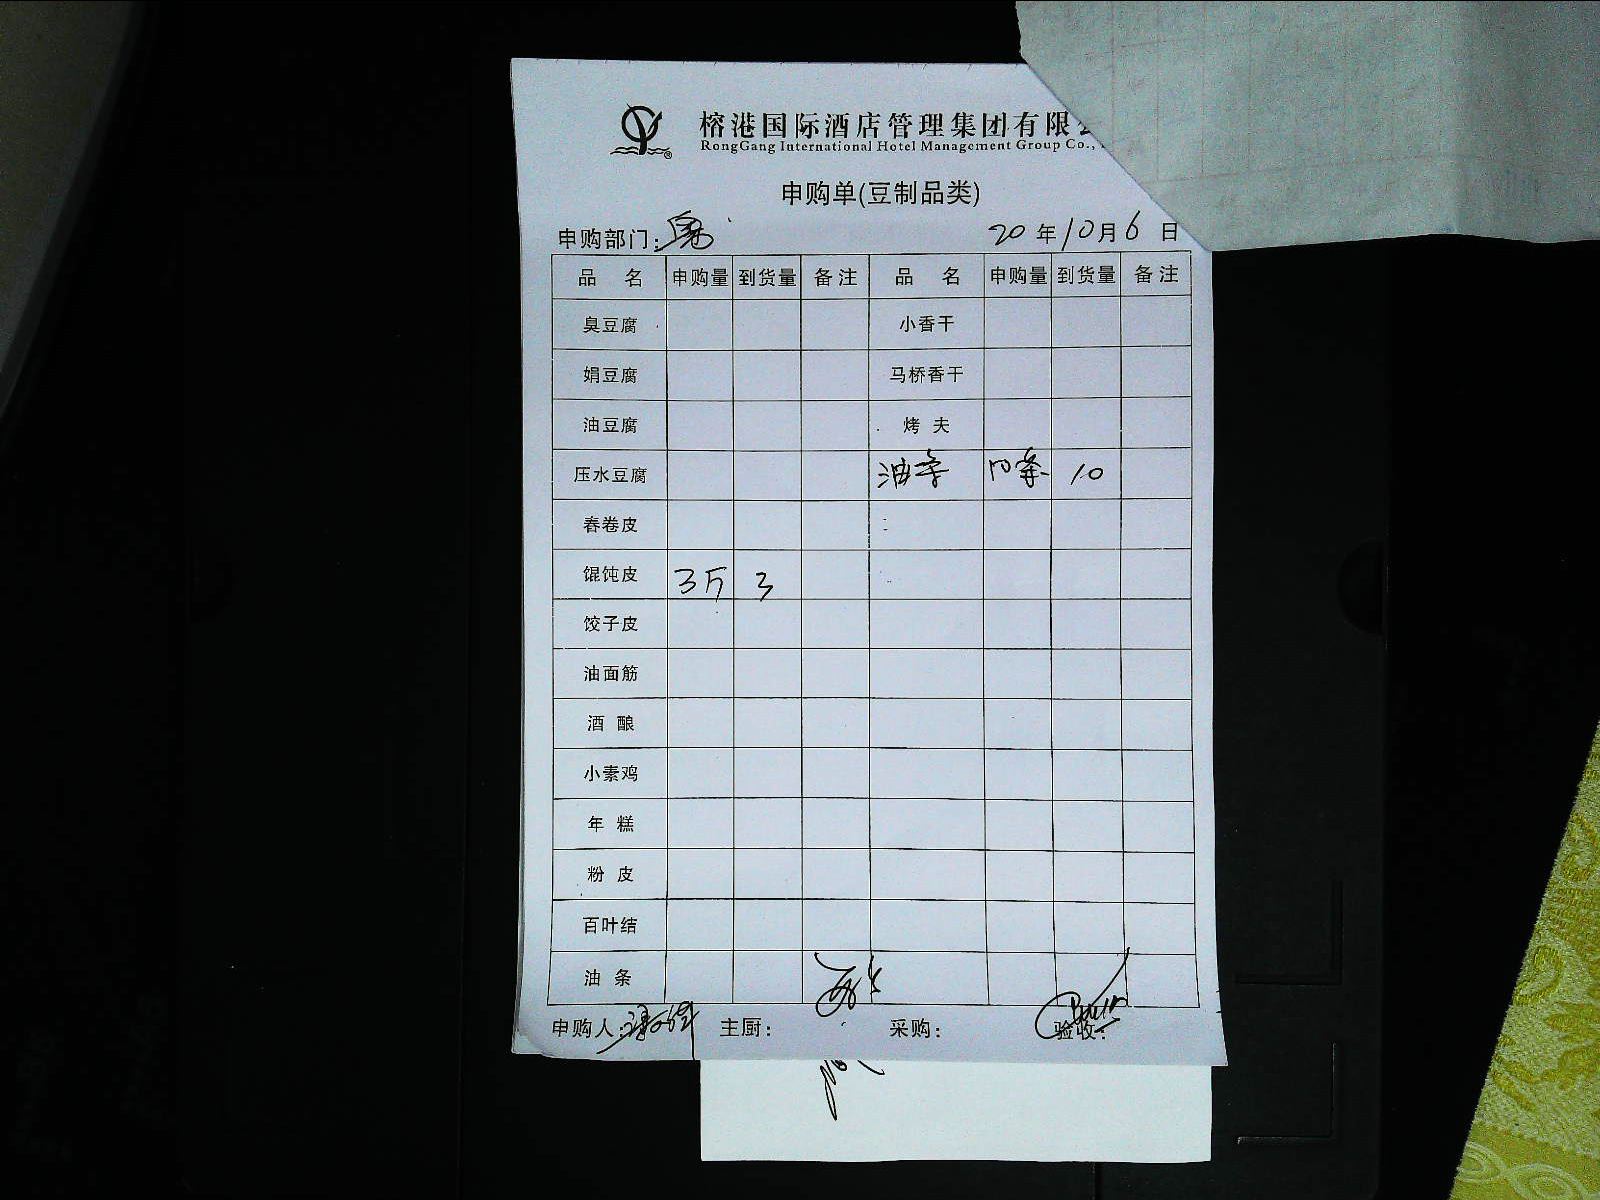 榕港国际酒店管理集团有限
RongGang International Hotel Management Group Co.,
申购单(豆制品类)
申购部门: 20 年 10 月 6 日
品 名 申购量 到货量 备注 品 名 申购量 到货量 备注
臭豆腐 小香干
娟豆腐 马桥香干
油豆腐 烤夫
压水豆腐 油条 10条 10
春卷皮
馄饨皮 3斤 3
饺子皮
油面筋
酒酿
小素鸡
年糕
粉皮
百叶结
油条
申购人: 主厨: 采购: 验收: